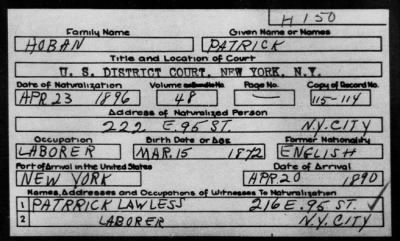 H 150
Family Name Given Name or Names
HOBAN PATRICK
Title and Location of Court
U. S. DISTRICT COURT, NEW YORK, N.Y.
Date of Naturalization Volume or Bundle No. Page No. Copy of Record No.
APR 23 1896 48 — 115-114
Address of Naturalized Person
222 E. 95 ST. N.Y. CITY
Occupation Birth Date or Age Former Nationality
LABORER MAR. 15 1872 ENGLISH
Port of Arrival in the United States Date of Arrival
NEW YORK APR. 20 1890
Names, Addresses and Occupations of Witnesses To Naturalization
1 PATRRICK LAWLESS 216 E. 95 ST. ✓
2 LABORER N.Y. CITY